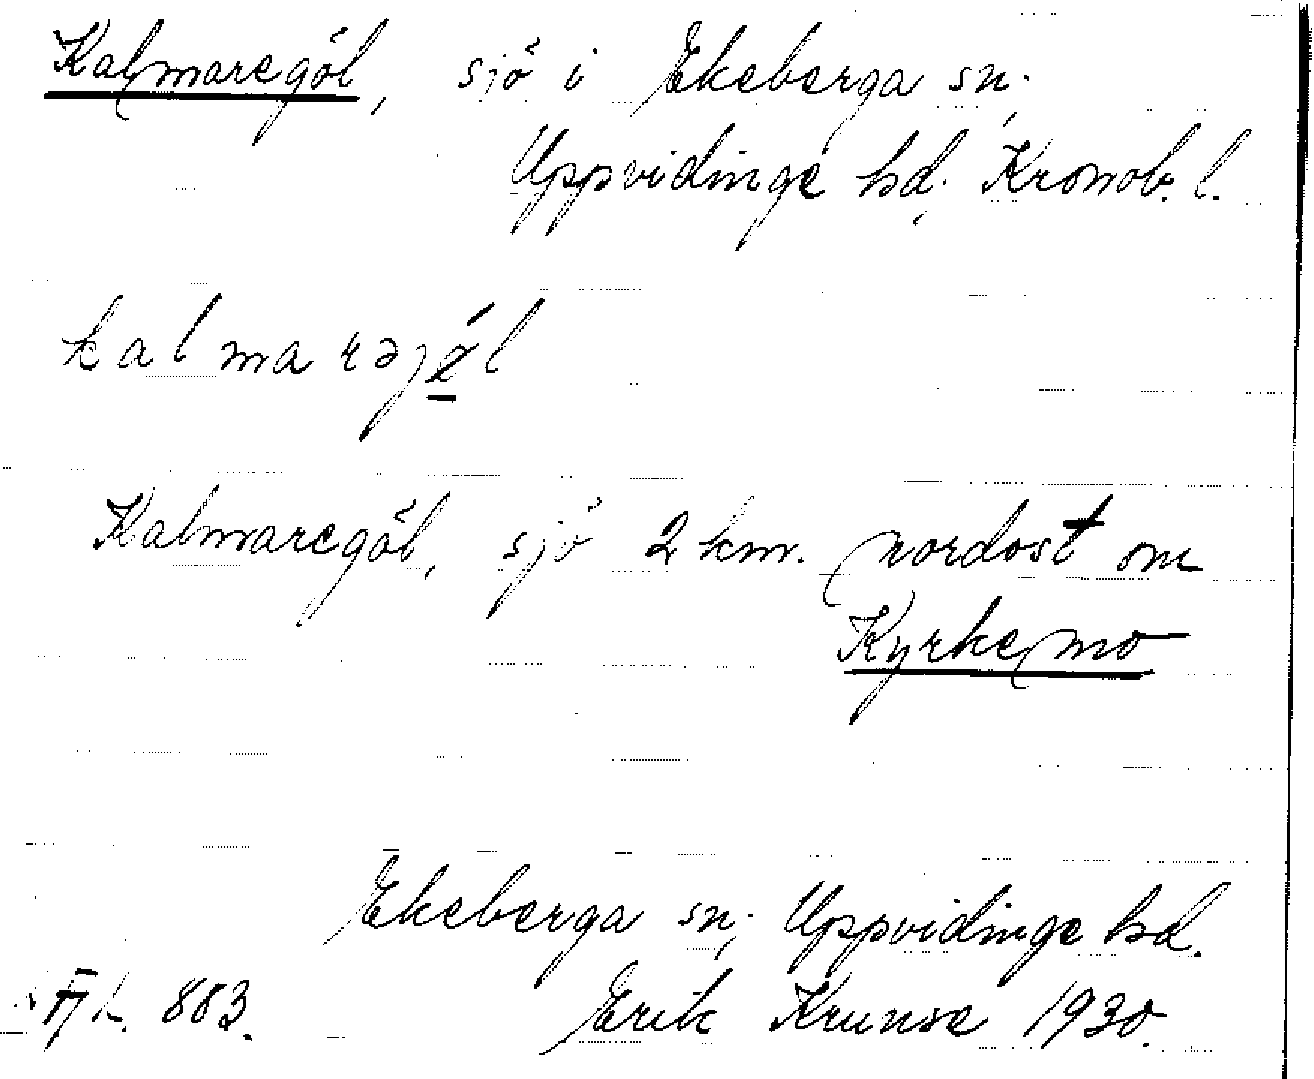 Kalmaregöl, sjö i Ekeberga sn.
Uppvidinge hd. Kronob. l.
kalmarəjǿl
Kalmaregöl, sjö 2 km. nordost om
Kyrkemo
Ekeberga sn; Uppvidinge hd.
883. Erik Krunse 1930.